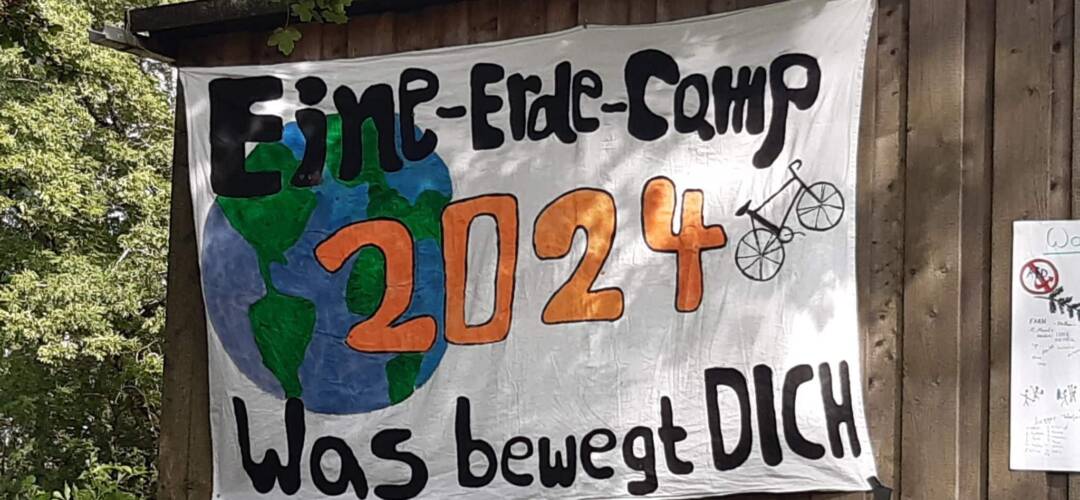 Eine-Erde-Camp
2024
Was bewegt DICH